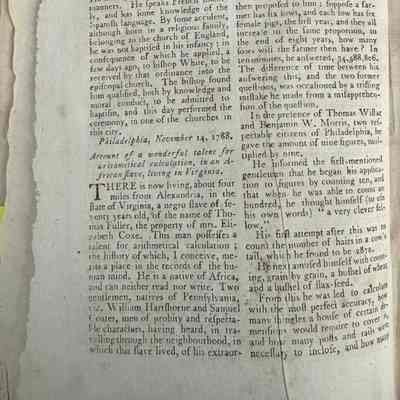 manners. He speaks French
ly, and has some knowledge of the
Spanish language. By some accident,
although born in a religious family,
belonging to the church of England,
he was not baptised in his infancy; in
consequence of which he applied, a
few days ago, to bishop White, to be
received by that ordinance into the
episcopal church. The bishop found
him qualified, both by knowledge and
moral conduct, to be admitted to
baptism, and this day performed the
ceremony, in one of the churches in
this city.
Philadelphia, November 14, 1788.
Account of a wonderful talent for
arithmetical calculation, in an Af-
rican slave, living in Virginia.
THERE is now living, about four
miles from Alexandria, in the
state of Virginia, a negro slave of se-
venty years old, of the name of Tho-
mas Fuller, the property of mrs. Eli-
zabeth Coxe. This man possesses a
talent for arithmetical calculation;
the history of which, I conceive, me-
rits a place in the records of the hu-
man mind. He is a native of Africa,
and can neither read nor write. Two
gentlemen, natives of Pennsylvania,
viz. William Hartshorne and Samuel
Coates, men of probity and respecta-
ble characters, having heard, in tra-
velling through the neighbourhood, in
which this slave lived, of his extraor-
then proposed to him; suppose a far-
mer has six sows, and each sow has six
female pigs, the first year, and they all
increase in the same proportion, to
the end of eight years, how many
sows will the farmer then have? In
ten minutes, he answered, 34,588,806.
The difference of time between his
answering this, and the two former
questions, was occasioned by a trifling
mistake he made from a misapprehen-
sion of the question.
In the presence of Thomas Wistar
and Benjamin W. Morris, two res-
pectable citizens of Philadelphia, he
gave the amount of nine figures, mul-
tiplied by nine.
He informed the first-mentioned
gentlemen that he began his applica-
tion to figures by counting ten, and
that when he was able to count an
hundred, he thought himself (to use
his own words) "a very clever fel-
low."
His first attempt after this was to
count the number of hairs in a cow's
tail, which he found to be 2872.
He next amused himself with count-
ing, grain by grain, a bushel of wheat,
and a bushel of flax-seed.
From this he was led to calculate
with the most perfect accuracy, how
many shingles a house of certain di-
mensions would require to cover it,
and how many posts and rails were
necessary to inclose, and how many